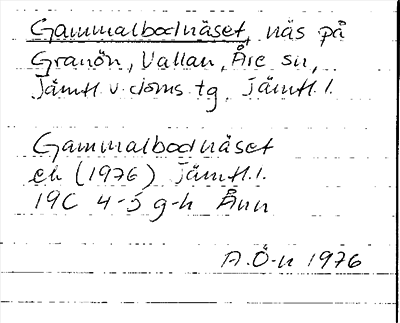 Gammalbodnäset, näs på
Granön, Vallan, Åre sn,
Jämtl. v. doms. tg, Jämtl. l.
Gammalbodnäset
ek (1976) Jämtl. l.
19C 4-5 g-h Ånn
A.Ö-n 1976